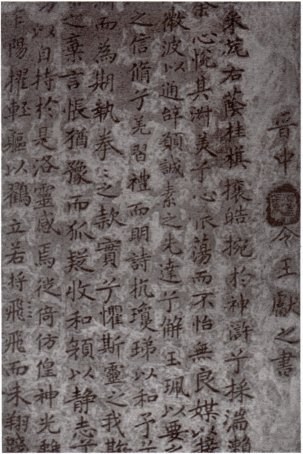 晉中令王獻之書
采旄右蔭桂棋攘皓捥於神滸兮採湍瀬
心恱其淑美兮心振蕩而不怡無良媒以接
微波以通辝願誠素之先達兮解玉珮以要之
之信脩兮羌習禮而明詩抗瓊珶以和予兮
而為期執拳〻之款實兮懼斯靈之我
之棄言悵猶豫而狐疑收和顏以静志兮
以自持於是洛靈感焉徙倚仿偟神光離
乍陽擢輕軀以鶴立若将飛飛而未翔踐